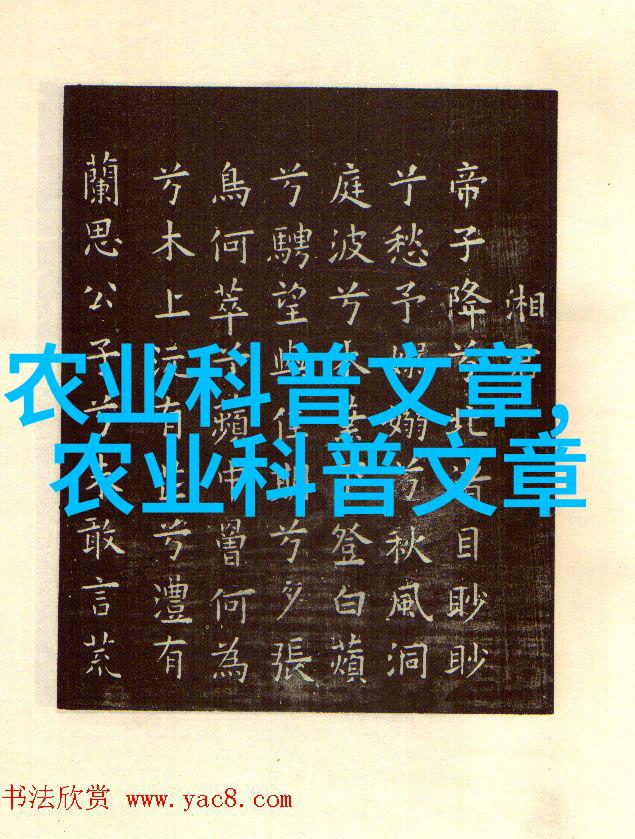 湘
帝子降兮北渚目眇眇
兮愁予嫋嫋兮秋風洞
庭波兮木葉登白薠
兮騁望與佳期兮夕張
鳥何萃兮蘋中罾何為
兮木上沅有芷兮澧有
蘭思公子兮未敢言荒
农业科普文章,
农业科普文章
书法欣赏 www.yac8.com